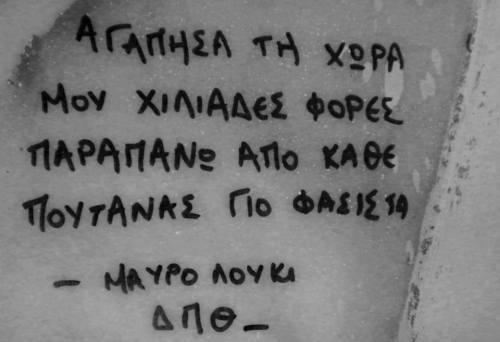 ΑΓΑΠΗΣΑ ΤΗ ΧΩΡΑ
ΜΟΥ ΧΙΛΙΑΔΕΣ ΦΟΡΕΣ
ΠΑΡΑΠΑΝΩ ΑΠΟ ΚΑΘΕ
ΠΟΥΤΑΝΑΣ ΓΙΟ ΦΑΣΙΣΤΑ
– ΜΑΥΡΟ ΛΟΥΚΙ
ΔΠΘ –